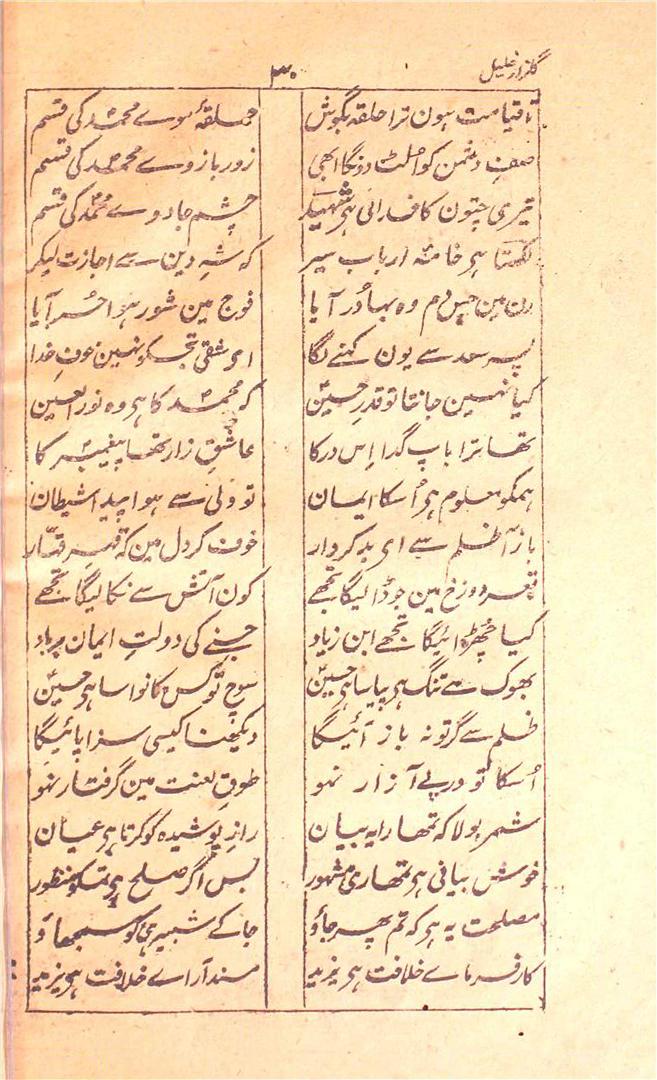 گلزار خلیل
۳۰
تا قیامت ہون ترا حلقہ بگوش حلقۂ موے محمدؐ کی قسم
صفِ دشمن کو اُلٹ دونگا ابھی زور بازوے محمدؐ کی قسم
تیری چتون کا فدائی ہی شہیدؔ چشم جادوے محمدؐ کی قسم
لکھتا ہی خامۂ ارباب سیر کہ شہِ دین سے اجازت لیکر
رن مین جس دم وہ بہادُر آیا فوج مین شور ہوا حُر آیا
پسر سعد سے یون کہنے لگا ای شقی تجھکو نہین خوفِ خدا
کیا نہین جانتا تو قدرِ حسینؑ کہ محمدؐ کا ہی وہ نور العین
تھا ترا باپ گدا اِس در کا عاشقِ زار تھا پیغمبرؐ کا
ہمکو معلوم ہی اُسکا ایمان تو ولی سے ہوا پیدا شیطان
باز آ ظلم سے ای بد کردار خوف کر دل مین کہ قہرِ قہّار
قعر دوزخ مین جو ڈالیگا تجھے کون آتش سے نکالیگا تجھے
کیا چُھڑوائیگا تجھے ابن زیاد جسنے کی دولتِ ایمان برباد
بھوک سے تنگ ہی پیاسا ہی حسینؑ سوچ تو کس کا نواسا ہی حسینؑ
ظلم سے گر تو نہ باز آئیگا دیکھنا کیسی سزا پائیگا
اُسکا تو درپےِ آزار نہو طوقِ لعنت مین گرفتار نہو
شمر بولا کہ تمھارا یہ بیان رازِ پوشیدہ کو کرتا ہی عیان
خوش بیانی ہی تمھاری مشہور بس اگر صلح ہی تمکو منظور
مصلحت یہ ہی کہ تم پھر جاؤ جاکے شبیر ہی کو سمجھاؤ
کارفرماے خلافت ہی یزید مسند آراے خلافت ہی یزید